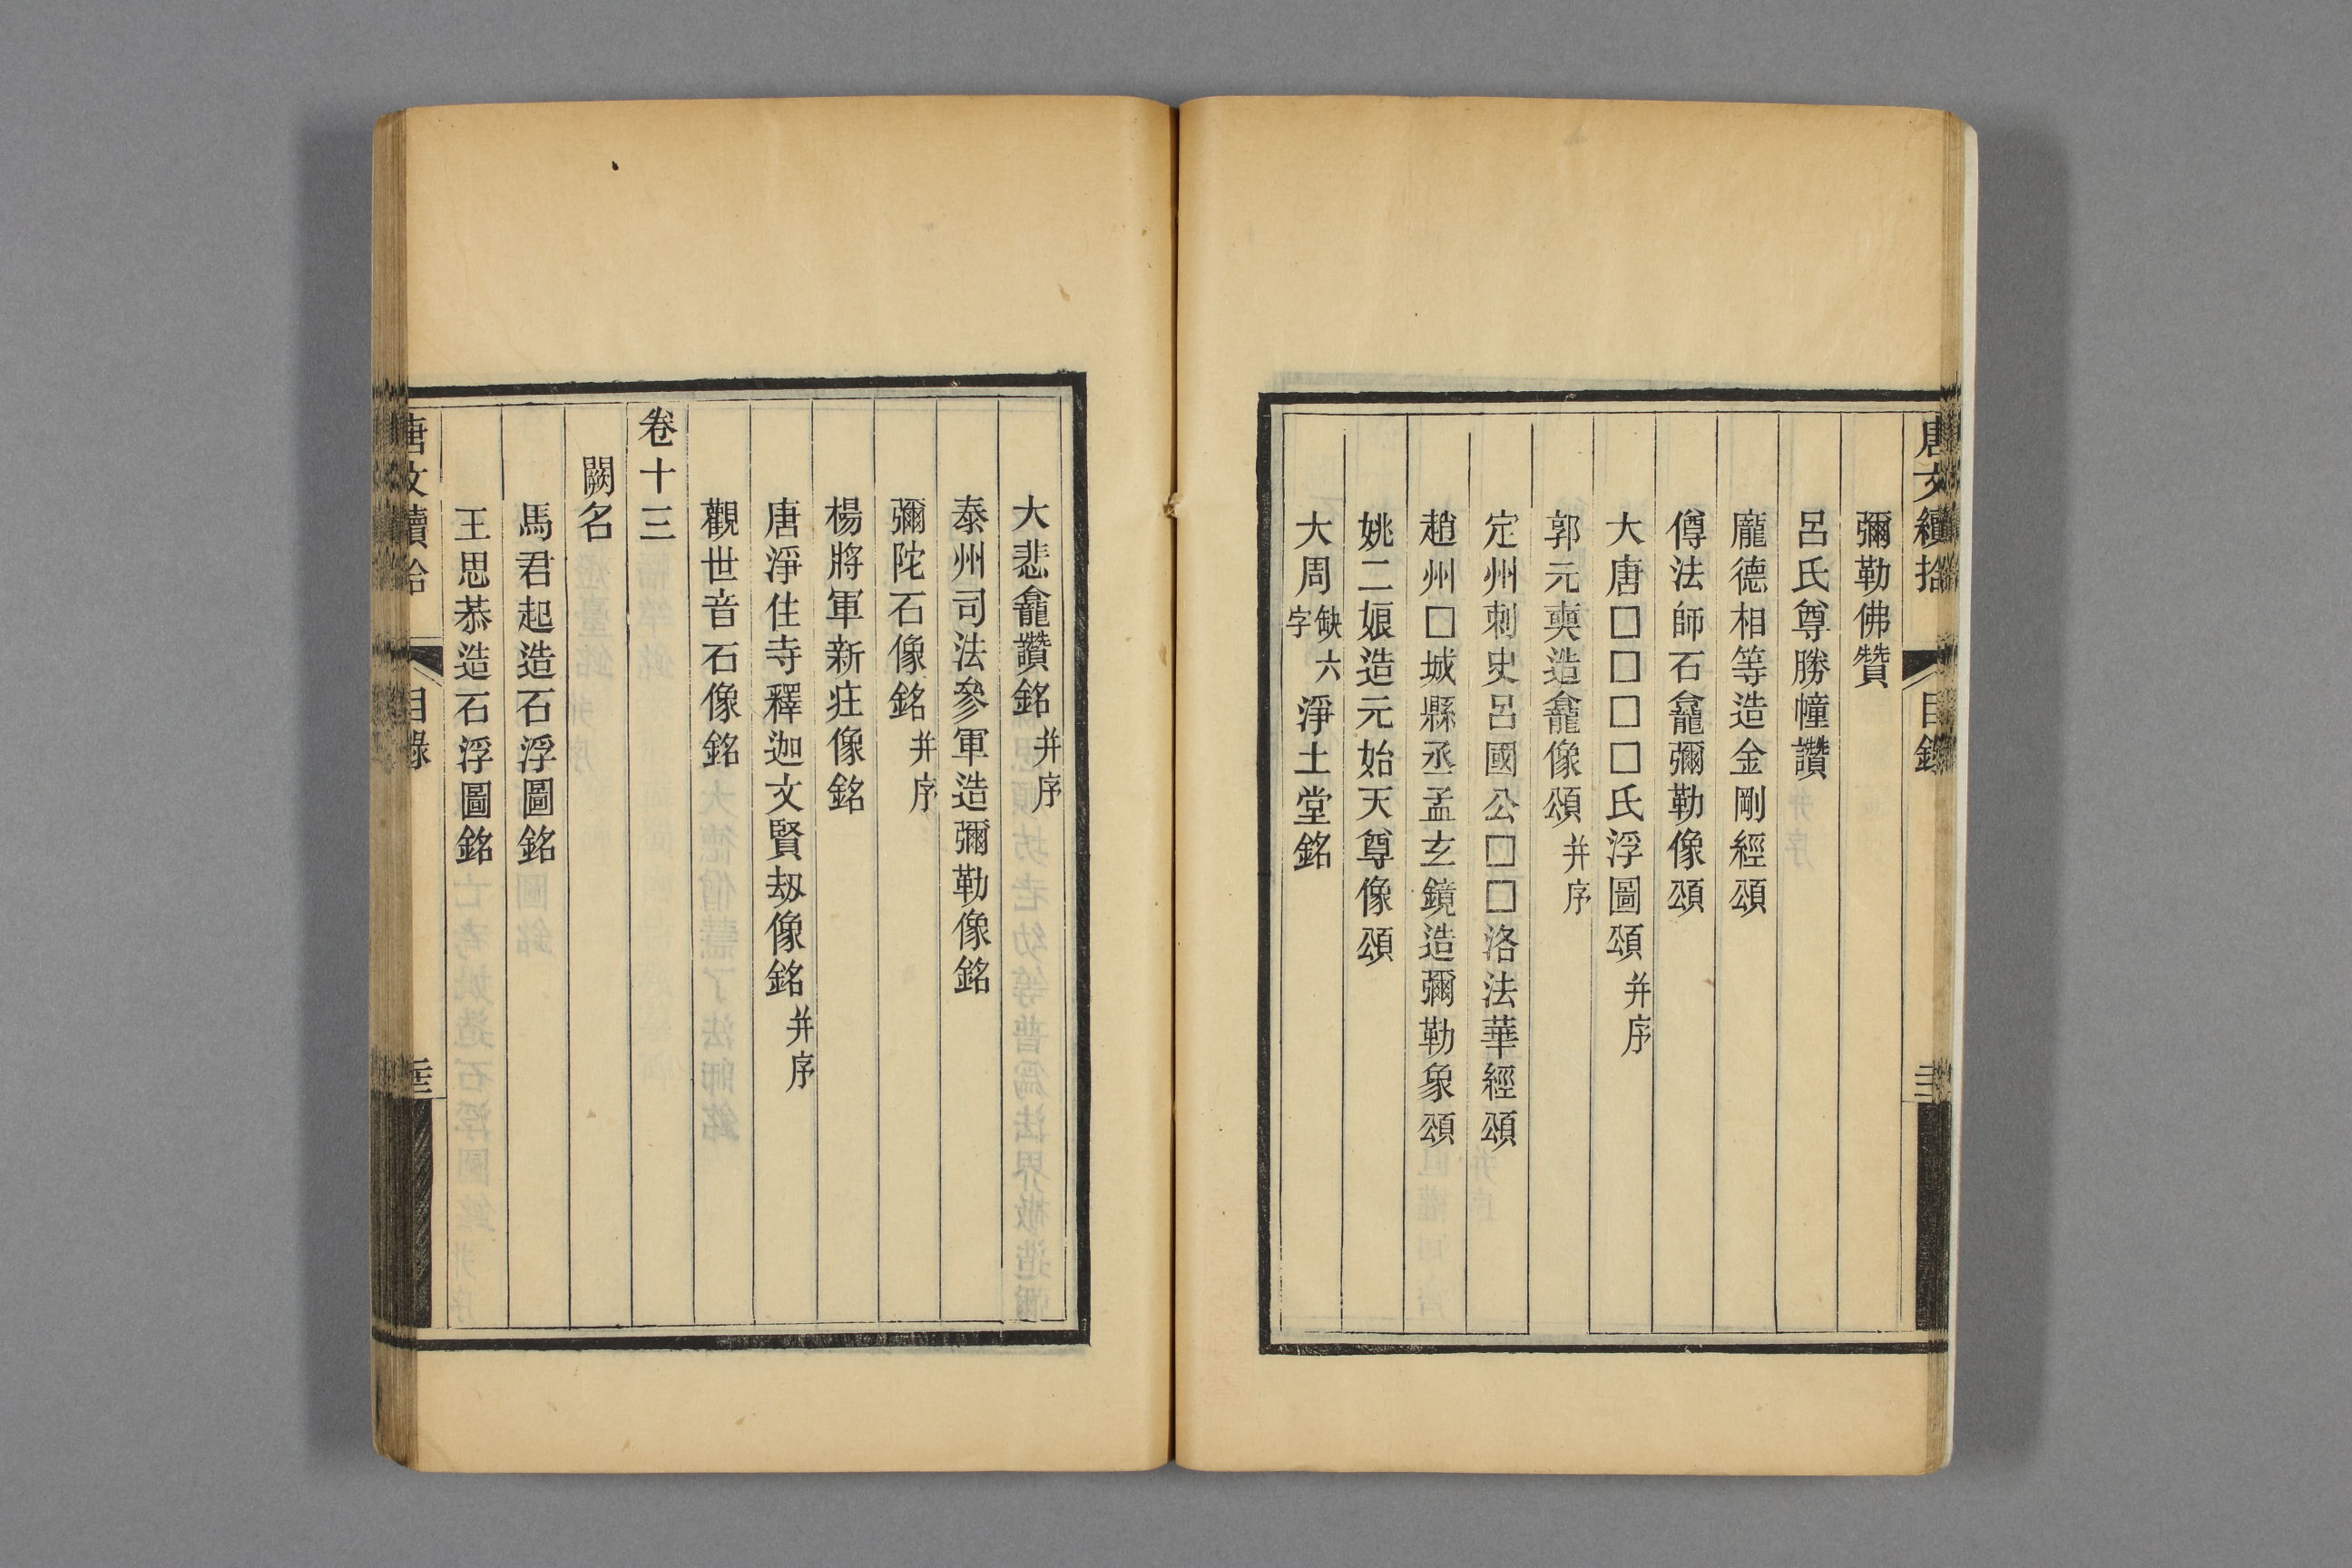 唐文續拾 目錄
彌勒佛贊
呂氏尊勝幢讚
龐德相等造金剛經頌
僔法師石龕彌勒像頌
大唐□□□□氏浮圖頌并序
郭元奭造龕像頌并序
定州刺史呂國公□□洛法華經頌
趙州□城縣丞孟玄鏡造彌勒象頌
姚二娘造元始天尊像頌
大周缺六字淨土堂銘
大悲龕讚銘并序
泰州司法參軍造彌勒像銘
彌陀石像銘并序
楊將軍新庄像銘
唐淨住寺釋迦文賢刼像銘并序
觀世音石像銘
卷十三
闕名
馬君起造石浮圖銘
王思恭造石浮圖銘
唐文續拾 目錄